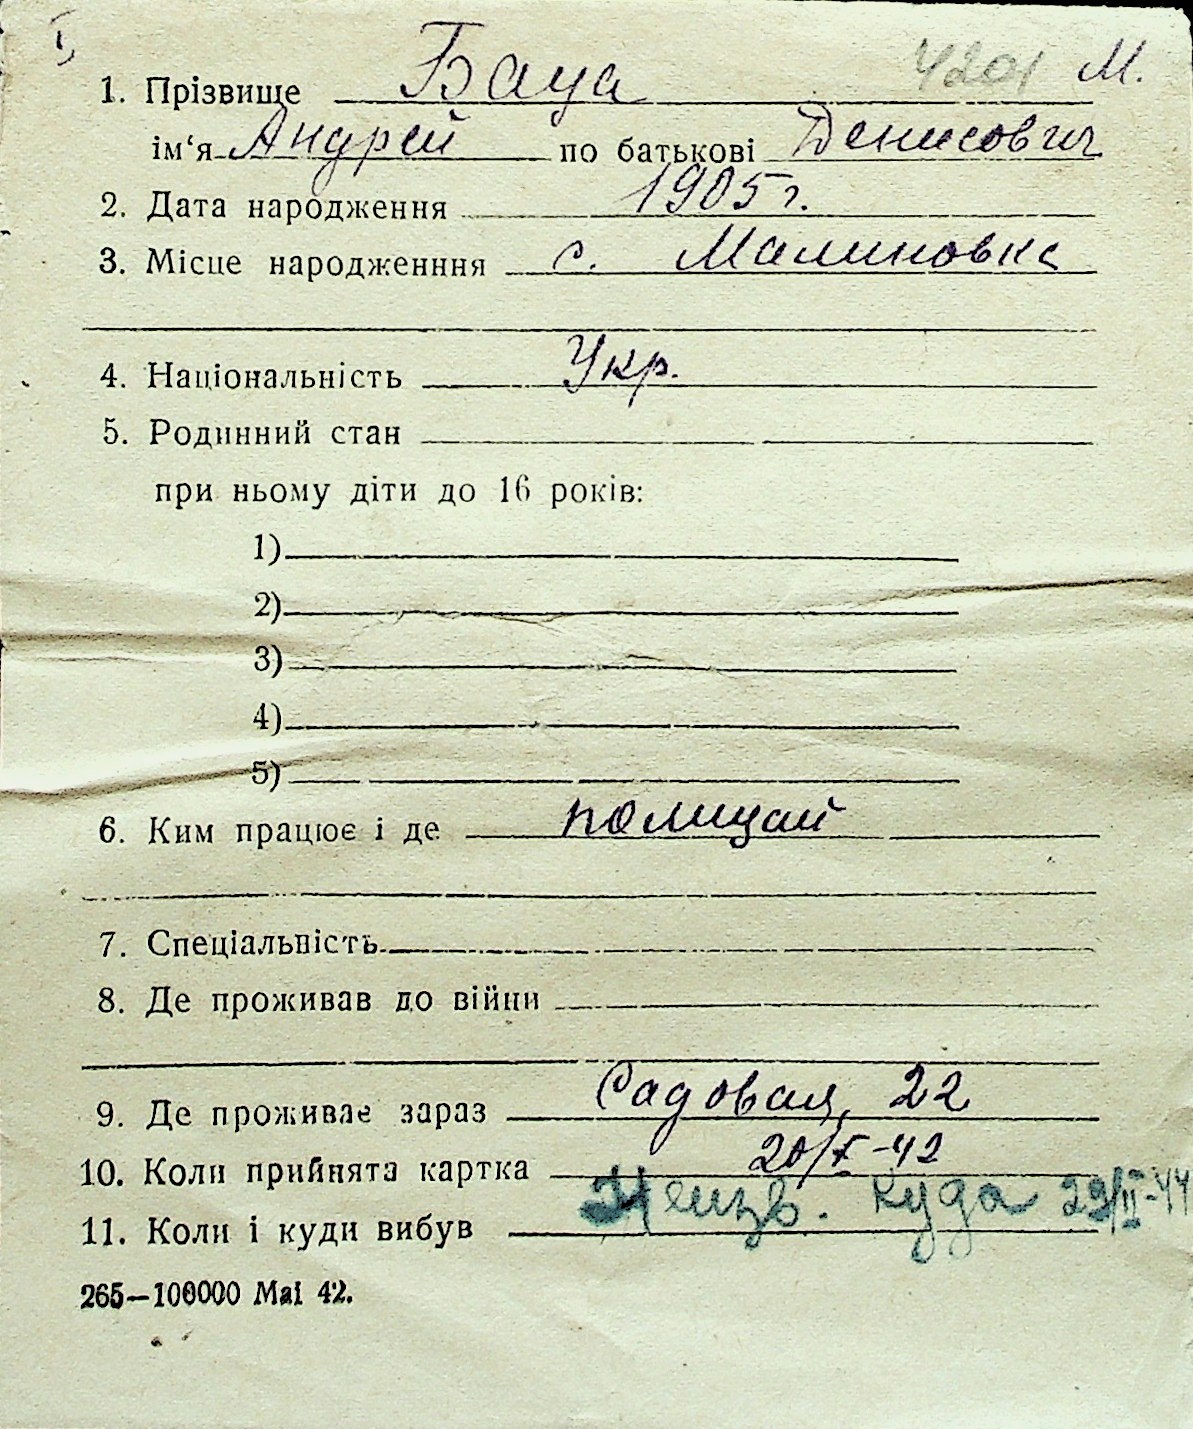 4201 М.
1. Прізвище Баца
ім‘я Андрей по батькові Денисович
2. Дата народження 1905 г.
3. Місце народженння с. Малиновка
4. Національність Укр.
5. Родинний стан
при ньому діти до 16 років:
1)
2)
3)
4)
5)
6. Ким працює і де полицай
7. Спеціальність
8. Де проживав до війни
9. Де проживає зараз Садовая, 22
10. Коли прийнята картка 20/X-42
11. Коли і куди вибув Неизв. куда 29/II-44
265—100000 Mai 42.